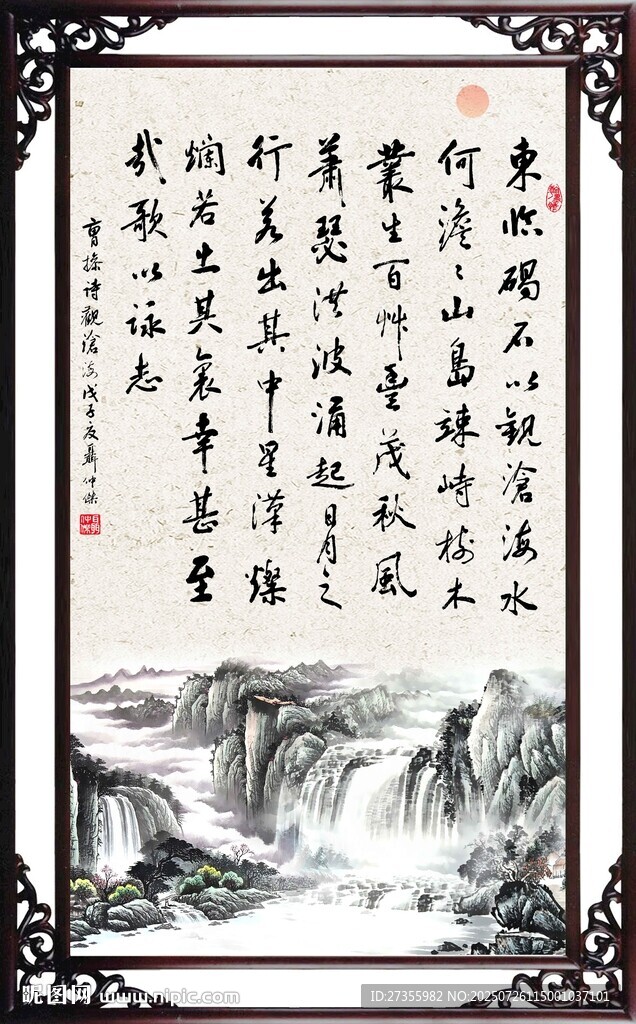 東臨碣石以觀滄海水
何澹々山島竦峙樹木
叢生百艸豐茂秋風
蕭瑟洪波涌起日月之
行若出其中星漢燦
爛若出其裏幸甚至
哉歌以詠志
曹操诗觀滄海戊子夏聶仲傑
昵图网 www.nipic.com
ID:27355982 NO.20250726115001037101